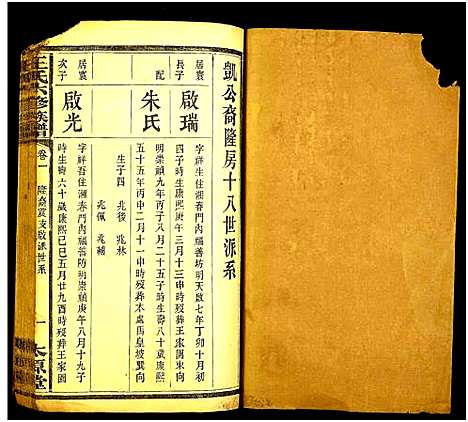 凱公裔隆房十八世派系
居寰長子
啟瑞
字祥吾住湘春門內福善坊明天啟七年丁卯十月初
四子時生康熙庚午三月十三寅時歿葬王家園東向
配
朱氏
明崇禎九年丙子十一月二十二
五十五年丙申二月十一申時歿葬本處馬皇坡巽向
生子四 兆後 兆林
兆佩 兆補
居寰次子
啟光
字祥生住湘春門內福善防明崇禎庚午八月十九子
時生壽六十歲康熙己巳五月廿九酉時歿葬王家園
王氏六修族譜
卷一 隆裔寰支啟派世系
一
太原堂